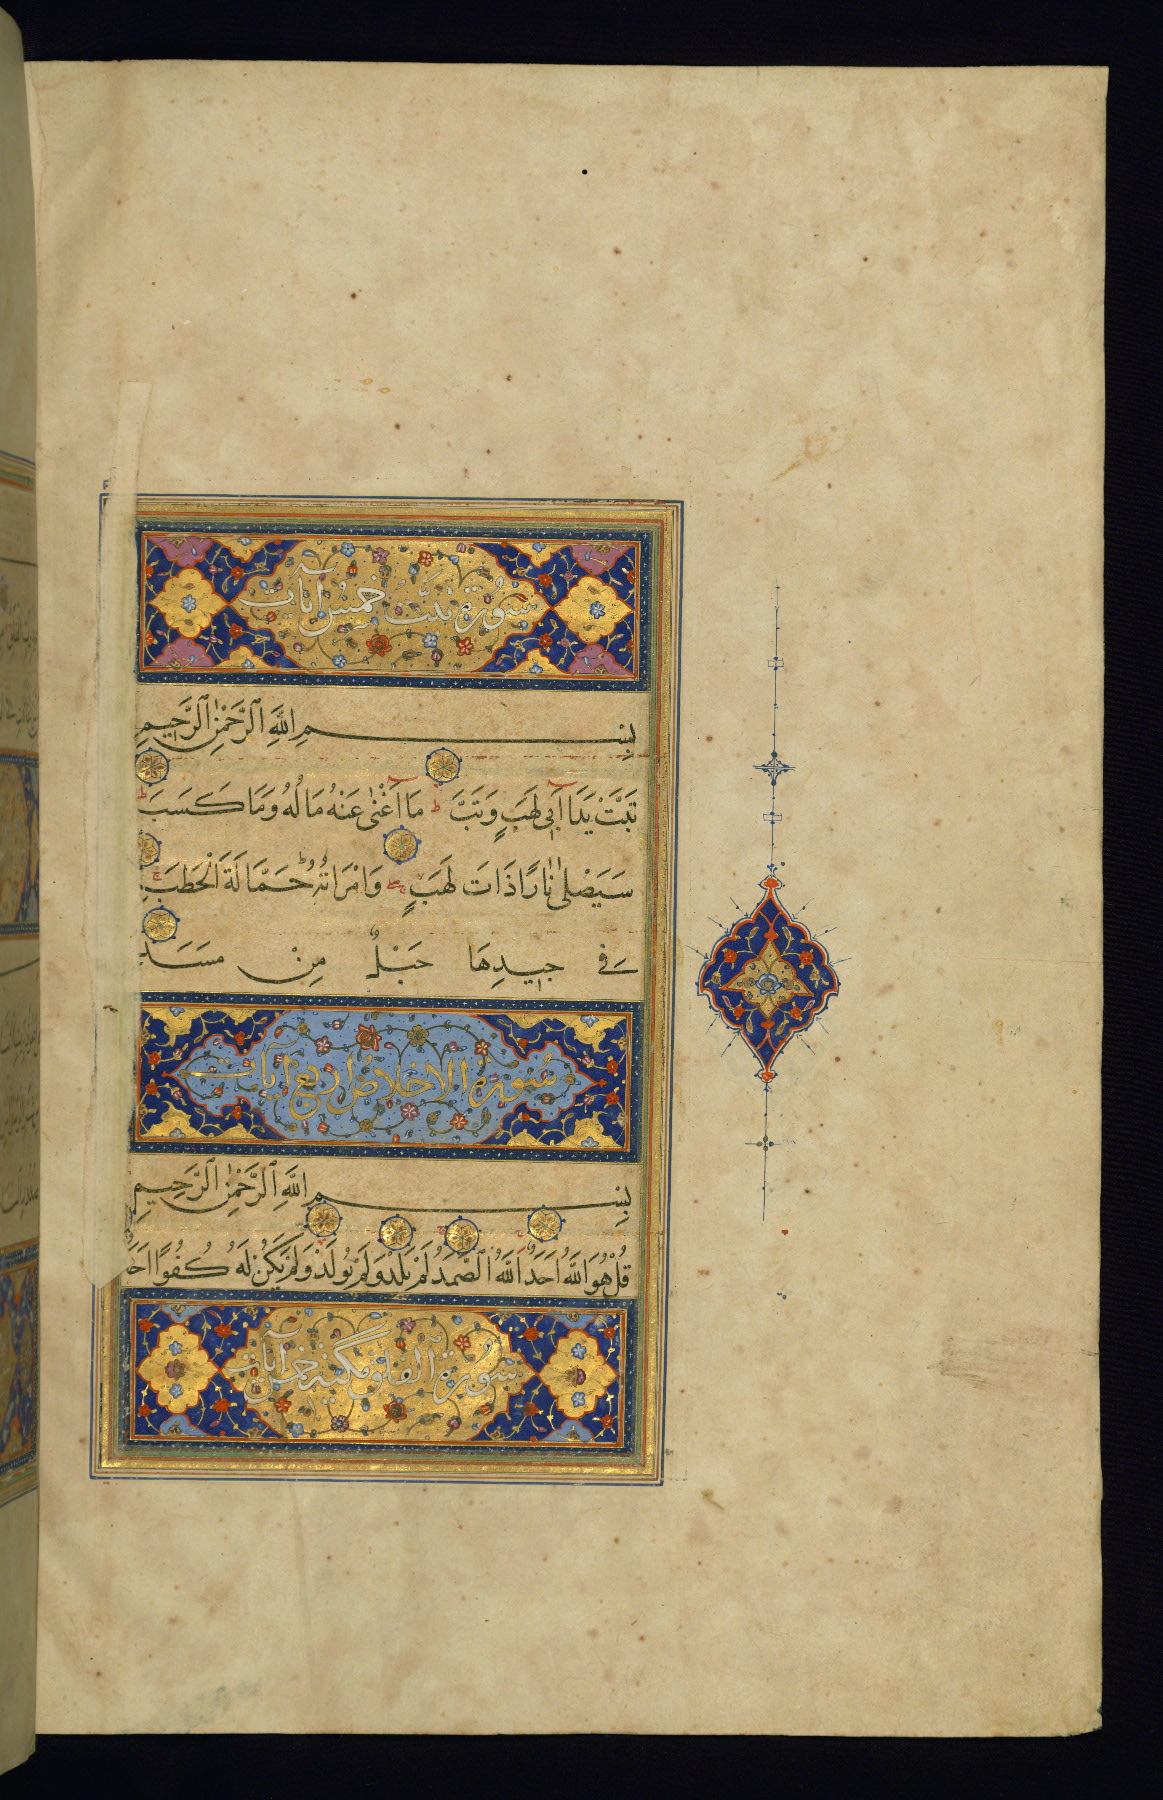 سورة تبت خمس آيات
بِسْمِ اللَّهِ ٱلرَّحْمٰنِ ٱلرَّحِيمِ
تَبَّتْ يَدَا أَبِي لَهَبٍ وَتَبَّ ط مَا أَغْنٰى عَنْهُ مَالُهُ وَمَا كَسَبَ ط
سَيَصْلىٰ نَارًا ذَاتَ لَهَبٍ وَامْرَاَتُهُ حَمَّالَةَ الْحَطَبِ
فِي جِيدِهَا حَبْلٌ مِنْ مَسَدٍ
سورة الاخلاص اربع آيات
بِسْمِ اللَّهِ ٱلرَّحْمٰنِ ٱلرَّحِيمِ
قُلْ هُوَ اللَّهُ اَحَدٌ اَللَّهُ الصَّمَدُ لَمْ يَلِدْ وَلَمْ يُولَدْ وَلَمْ يَكُنْ لَهُ كُفُوًا اَحَ
سورة الفلق مكية خمس آيات